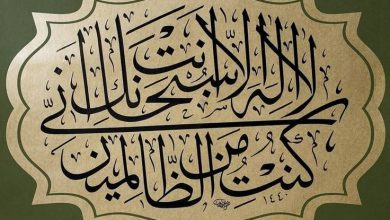 لا اله الا انت سبحانك اني
كنت من الظالمين
١٤٤٠